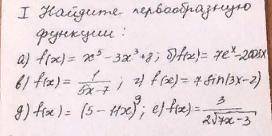 I Найдите первообразную
функции:
а) f(x) = x⁵ - 3x³ + 8; б) f(x) = 7eˣ - 2cosx
в) f(x) = 1/(5x-7); г) f(x) = 7 sin(3x-2)
д) f(x) = (5 - 11x)⁹; е) f(x) = 3/(2√(7x-3))